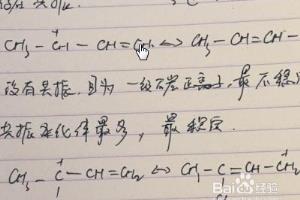 CH₃-C⁺H-CH=CH₂ ⟷ CH₃-CH=CH-
没有共振,因为一级碳正离子,最不稳
共振杂化体最多,最稳定.
CH₃-C⁺-CH=CH₂ ⟷ CH₃-C=CH-C⁺H₂
Baidu经验